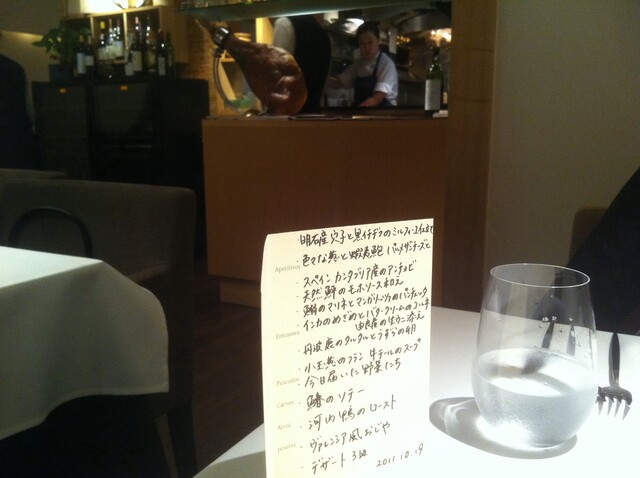 明石産 穴子と黒イチジクのミルフィーユ仕立て
色々な茸と蝦夷鮑 パルメザンチーズと
Aperitivos
スペイン カンタブリア産のアンチョビ
天然鮃のモホソース和え
鰯のマリネとマンガリッツァのパンチェッタ
インカのめざめとバタークリームのコロッケ
由良産の生ウニ添え
Entrantes
丹波鹿のタルタルとうずらの卵
小玉葱のフラン 牛テールのスープ
Pescados
今日届いた野菜たち
Carnes
鰆のソテー
Arroz
河内鴨のロースト
postres
ヴァレンシア風おじや
デザート3種
2011.10.19